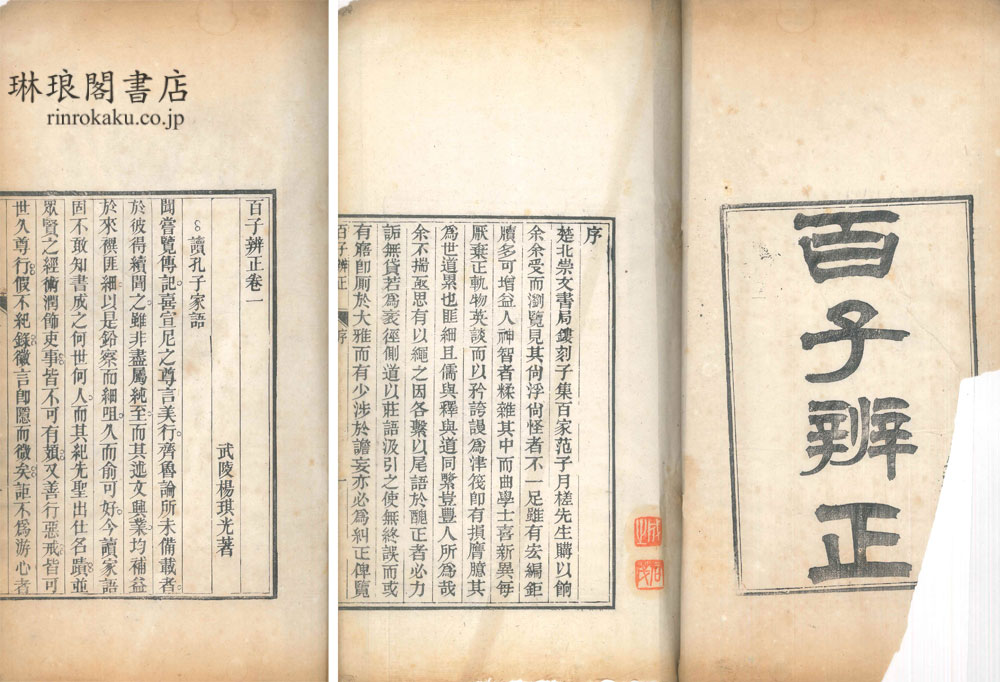 百子辨正
序
楚北崇文書局鏤刻子集百家范子月槎先生購以餉
余余受而瀏覽見其尚浮尚怪者不一足雖有宏編鉅
牘多可增益人神智者糅雜其中而曲學士喜新異每
厭棄正軌物英談而以矜誇謾為津筏卽有損膺臆其
為世道累也匪細且儒與釋與道同縶豈豐人所為哉
余不揣亟思有以繩之因各繫以尾語於醜正者必力
詬無貸若為衺徑側道以莊語汲引之使無終誤而或
有窮卽厠於大雅而有少涉於譫妄亦必為糾正俾覽
百子辨正 序 一
百子辨正卷一
武陵楊琪光著
讀孔子家語
聞嘗覽傳記喜宣尼之尊言美行齊魯論所未備載者
於彼得續聞之雖非盡屬純至而其述文興業均補益
於來禩匪細以是鉛察而細咀久而俞可好今讀家語
固不敢知書成之何世何人而其紀先聖出仕名蹟並
眾賢之經術潤飾吏事皆不可有纇又善行惡戒皆可
世久尊行假不紀錄徽言卽隱而微矣詎不為游心者
琳琅閣書店
rinrokaku.co.jp